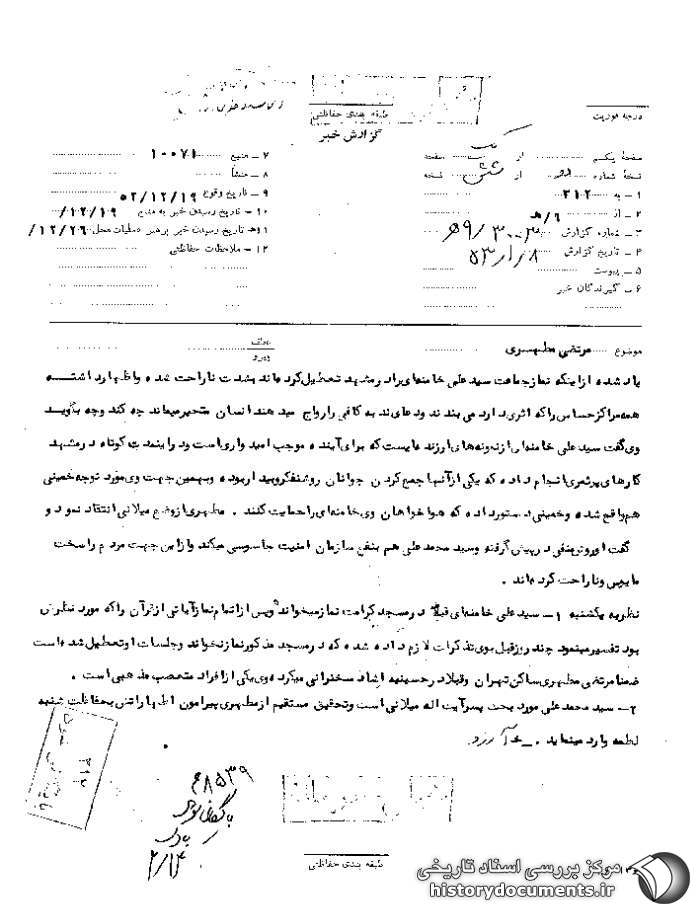 درجه فوریت
طبقه بندی حفاظتی
گزارش خبر
صفحه یکم از یک صفحه
نسخه شماره از شش نسخه
۱ – به ۳۱۲
۲ – از ۹/ه
۳ – شماره گزارش
۴ – تاریخ گزارش ۵۳/۱/۸
۵ – پیوست
۶ – گیرندگان خبر
۷ – منبع ۱۰۰۷۱
۸ – منشأ
۹ – تاریخ وقوع ۵۲/۱۲/۱۹
۱۰ – تاریخ رسیدن خبر به منبع ۱۲/۱۹/
۱۱ – تاریخ رسیدن خبر برهبر عملیات محل ۱۲/۲۶/
۱۲ – ملاحظات حفاظتی
موضوع مرتضی مطهری
یاد شده از اینکه نماز جماعت سید علی خامنه‌ای را در مشهد تعطیل کرده‌اند بشدت ناراحت شده و اظهار داشته
همه مراکز حساس را که اثری دارد می‌بندند و دعای ندبه کافی را رواج میدهند انسان متحیر میماند چه کند و چه بگوید
وی گفت سید علی خامنه‌ای از نمونه‌های ارزنده‌ایست که برای آینده موجب امیدواری است و در اینمدت کوتاه در مشهد
کارهای پرثمری انجام داده که یکی از آنها جمع کردن جوانان روشنفکر و بیدار بوده و بهمین جهت وی مورد توجه خمینی
هم واقع شده و خمینی دستور داده که هواخواهان وی خامنه‌ای را حمایت کنند . مطهری از وضع میلانی انتقاد نمود و
گفت او روش منفی در پیش گرفته و سید محمد علی هم بنفع سازمان امنیت جاسوسی میکند و از این جهت مردم را سخت
مایوس و ناراحت کرده‌اند .
نظریه یکشنبه ۱ – سید علی خامنه‌ای قبلا در مسجد کرامت نماز میخواند و پس از اتمام نماز آیاتی از قرآن را که مورد نظرش
بود تفسیر مینمود چند روز قبل بوی تذکرات لازم داده شده که در مسجد مذکور نماز نخواند و جلسات او تعطیل شده است
ضمنا مرتضی مطهری ساکن تهران و قبلا در حسینیه ارشاد سخنرانی میکرده وی یکی از افراد متعصب مذهبی است .
۲ – سید محمد علی مورد بحث پسر آیت اله میلانی است و تحقیق مستقیم از مطهری پیرامون اظهاراتش بحفاظت شنبه
لطمه وارد مینماید .
۳۱۲
بایگانی شود
۲/۱۴
طبقه بندی حفاظتی
مرکز بررسی اسناد تاریخی
historydocuments.ir